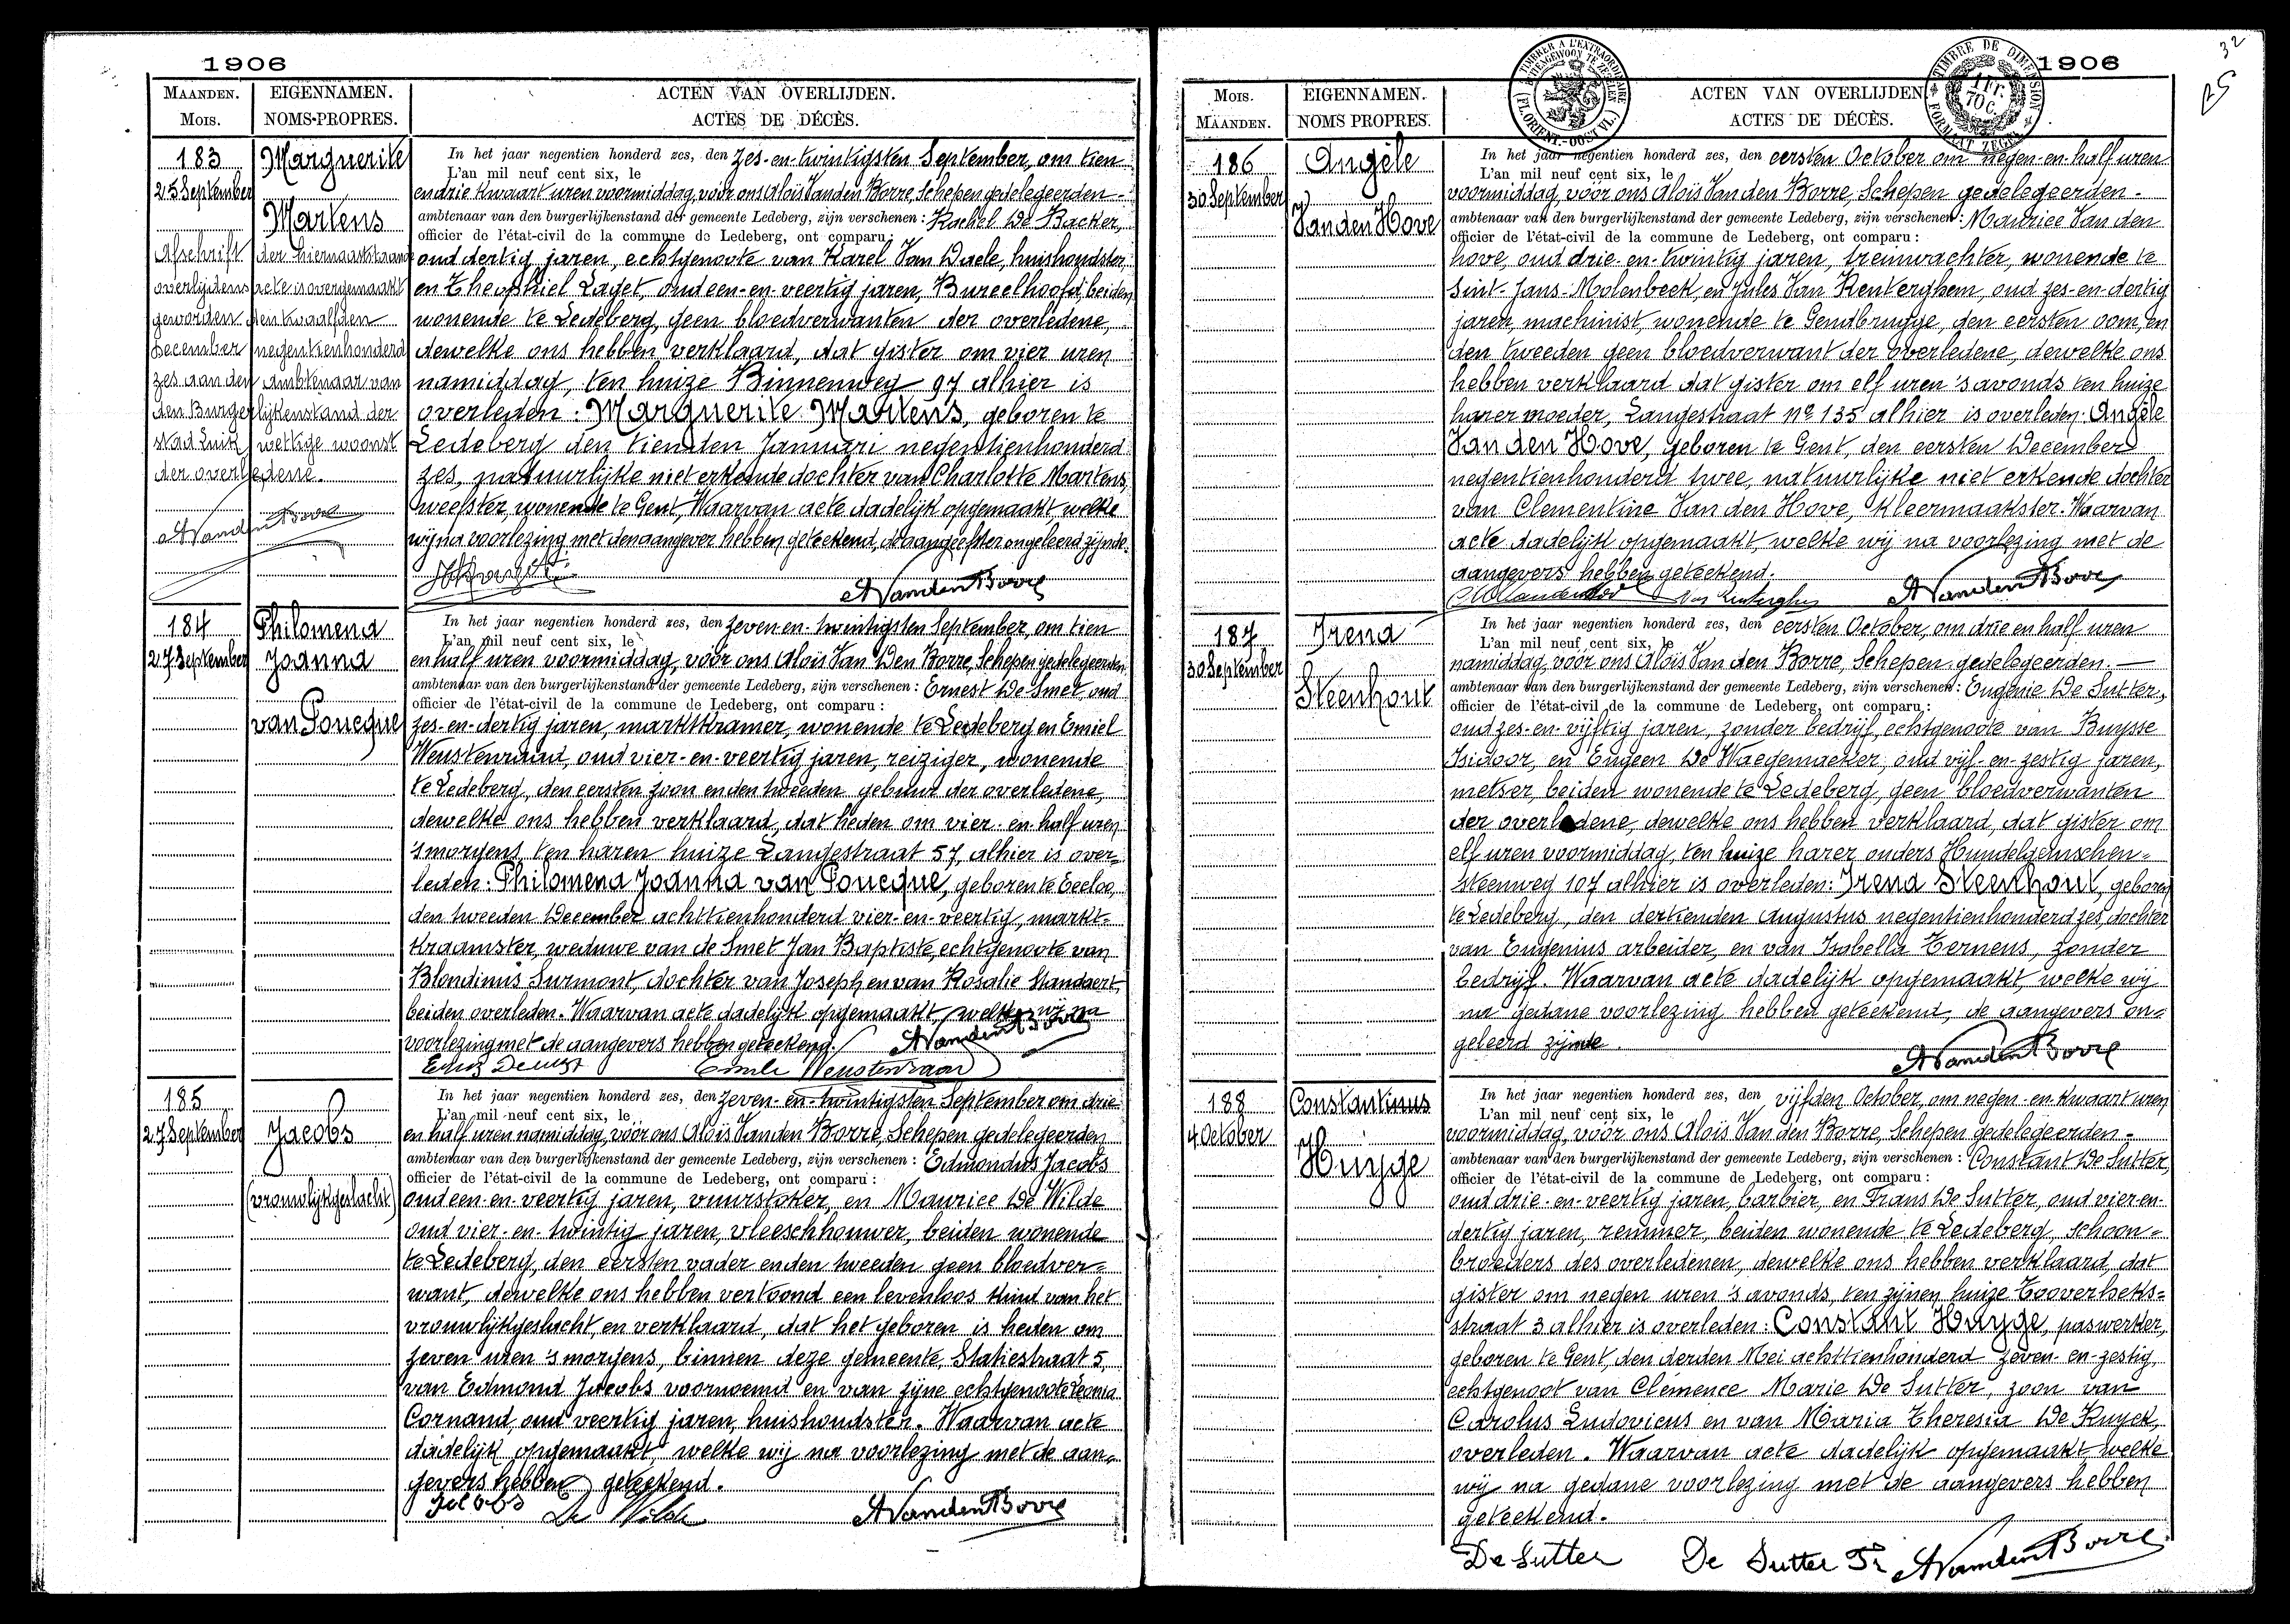 1906
MAANDEN.
Mois.
EIGENNAMEN.
NOMS-PROPRES.
ACTEN VAN OVERLIJDEN.
ACTES DE DÉCÈS.
183
25 September
Marguerite
Martens
Afschrift der hiernaaststaande
overlijdens acte is overgemaakt
geworden den twaalfden
December negentienhonderd
zes aan den Ambtenaar van
den Burgerlijkenstand der
stad Luik wettige woonst
der overledene.
AVandenBorre
In het jaar negentien honderd zes, den zes-en-twintigsten September, om tien
L'an mil neuf cent six, le
en drie kwaart uren voormiddag, vóór ons Aloïs Vanden Borre, Schepen gedelegeerden -
ambtenaar van den burgerlijkenstand der gemeente Ledeberg, zijn verschenen : Rachel De Backer,
officier de l'état-civil de la commune de Ledeberg, ont comparu :
oud dertig jaren, echtgenoote van Karel Van Daele, huishoudster,
en Theophiel Laget, oud een-en-veertig jaren, Bureelhoofd, beiden
wonende te Ledeberg, geen bloedverwanten der overledene,
dewelke ons hebben verklaard, dat gister om vier uren
namiddag, ten huize Binnenweg 97 alhier is
overleden : Marguerite Martens, geboren te
Ledeberg den tienden Januari negentienhonderd
zes, natuurlijke niet erkende dochter van Charlotte Martens,
weefster, wonende te Gent, Waarvan acte dadelijk opgemaakt, welke
wij na voorlezing met den aangever hebben geteekend, de aangeefster ongeleerd zijnde.
AVandenBorre
184
27 September
Philomena
Joanna
van Poucque
In het jaar negentien honderd zes, den zeven-en-twintigsten September, om tien
L'an mil neuf cent six, le
en half uren voormiddag, vóór ons Aloïs Van Den Borre, Schepen gedelegeerden
ambtenaar van den burgerlijkenstand der gemeente Ledeberg, zijn verschenen : Ernest De Smet, oud
officier de l'état-civil de la commune de Ledeberg, ont comparu :
zes-en-dertig jaren, marktkramer, wonende te Ledeberg en Emiel
Weustenraad, oud vier-en-veertig jaren, reiziger, wonende
te Ledeberg, den eersten zoon en den tweeden gebuur der overledene,
dewelke ons hebben verklaard, dat heden om vier-en-half uren
'smorgens, ten haren huize Langestraat 57, alhier is over=
leden : Philomena Joanna van Poucque, geboren te Eecloo,
den tweeden December achttienhonderd vier-en-veertig, markt-
kraamster, weduwe van de Smet Jan Baptiste, echtgenoote van
Blondinus Surmont, dochter van Joseph en van Rosalie Standaert,
beiden overleden. Waarvan acte dadelijk opgemaakt, welke wij na
voorlezing met de aangevers hebben geteekend.
AVandenBorre
Emile Weustenraad
185
27 September
Jacobs
(vrouwlijkgeslacht)
In het jaar negentien honderd zes, den zeven-en-twintigsten September om drie
L'an mil neuf cent six, le
en half uren namiddag, vóór ons Aloïs Vanden Borre, Schepen gedelegeerden
ambtenaar van den burgerlijkenstand der gemeente Ledeberg, zijn verschenen : Edmondus Jacobs
officier de l'état-civil de la commune de Ledeberg, ont comparu :
oud een-en-veertig jaren, vuurstoker, en Maurice De Wilde
oud vier-en-twintig jaren, vleeschhouwer, beiden wonende
te Ledeberg, den eersten vader en den tweeden geen bloedver=
want, dewelke ons hebben vertoond een levenloos kind van het
vrouwlijkgeslacht, en verklaard, dat het geboren is heden om
zeven uren 'smorgens, binnen deze gemeente, Statiestraat 5,
van Edmond Jacobs voornoemd en van zijne echtgenoote Leonia
Cornand, oud veertig jaren, huishoudster. Waarvan acte
dadelijk opgemaakt, welke wij na voorlezing met de aan-
gevers hebben geteekend.
Jacobs De Wilde AVandenBorre
32
25
1906
TIMBRER A L'EXTRAORDINAIRE
BUITENGEWOON TE ZEGELEN
(FL. ORIENT.-OOST VL.)
TIMBRE DE DIMENSION
1 Fr.
70 C.
FORMAAT ZEGEL
Mois.
MAANDEN.
EIGENNAMEN.
NOMS PROPRES.
ACTEN VAN OVERLIJDEN.
ACTES DE DÉCÈS.
186
30 September
Angèle
Van den Hove
In het jaar negentien honderd zes, den eersten October om negen-en-half uren
L'an mil neuf cent six, le
voormiddag, vóór ons Aloïs Van den Borre, Schepen gedelegeerden -
ambtenaar van den burgerlijkenstand der gemeente Ledeberg, zijn verschenen : Maurice Van den
officier de l'état-civil de la commune de Ledeberg, ont comparu :
hove, oud drie-en-twintig jaren, treinwachter, wonende te
Sint-Jans-Molenbeek, en Jules Van Renterghem, oud zes-en-dertig
jaren, machinist, wonende te Gendbrugge, den eersten oom, en
den tweeden geen bloedverwant der overledene, dewelke ons
hebben verklaard dat gister om elf uren 's avonds ten huize
harer moeder, Langestraat No 135 alhier is overleden: Angèle
Van den Hove, geboren te Gent, den eersten December
negentienhonderd twee, natuurlijke niet erkende dochter
van Clementine Van den Hove, Kleermaakster. Waarvan
acte dadelijk opgemaakt, welke wij na voorlezing met de
aangevers hebben geteekend.
AVandenBorre
187
30 September
Irena
Steenhout
In het jaar negentien honderd zes, den eersten October, om drie en half uren
L'an mil neuf cent six, le
namiddag, vóór ons Aloïs Van den Borre, Schepen gedelegeerden. —
ambtenaar van den burgerlijkenstand der gemeente Ledeberg, zijn verschenen : Eugenie De Sutter,
officier de l'état-civil de la commune de Ledeberg, ont comparu :
oud zes-en-vijftig jaren, zonder bedrijf, echtgenoote van Buysse
Isidoor, en Eugeen De Waegemaeker, oud vijf-en-zestig jaren,
metser, beiden wonende te Ledeberg, geen bloedverwanten
der overledene, dewelke ons hebben verklaard, dat gister om
elf uren voormiddag, ten huize harer ouders Hundelgemschen=
steenweg 107 alhier is overleden: Irena Steenhout, geboren
te Ledeberg, den dertienden Augustus negentienhonderd zes, dochter
van Eugenius arbeider, en van Isabella Terneus, zonder
bedrijf. Waarvan acte dadelijk opgemaakt, welke wij
na gedane voorlezing hebben geteekend, de aangevers on=
geleerd zijnde.
AVandenBorre
188
4 October
Constantinus
Huyge
In het jaar negentien honderd zes, den vijfden October, om negen-en-kwaart uren
L'an mil neuf cent six, le
voormiddag, vóór ons Aloïs Van den Borre, Schepen gedelegeerden -
ambtenaar van den burgerlijkenstand der gemeente Ledeberg, zijn verschenen : Constant De Sutter,
officier de l'état-civil de la commune de Ledeberg, ont comparu :
oud drie-en-veertig jaren, barbier, en Frans De Sutter, oud vier-en-
dertig jaren, remmer, beiden wonende te Ledeberg, schoon=
broeders des overledenen, dewelke ons hebben verklaard, dat
gister om negen uren 's avonds, ten zijnen huize Tooverheks=
straat 3 alhier is overleden : Constant Huyge, paswerker,
geboren te Gent, den derden Mei achttienhonderd zeven-en-zestig,
echtgenoot van Clémence Marie De Sutter, zoon van
Carolus Ludovicus en van Maria Theresia De Kuyck,
overleden. Waarvan acte dadelijk opgemaakt welke
wij na gedane voorlezing met de aangevers hebben
geteekend.
De Sutter De Sutter Fr AVandenBorre